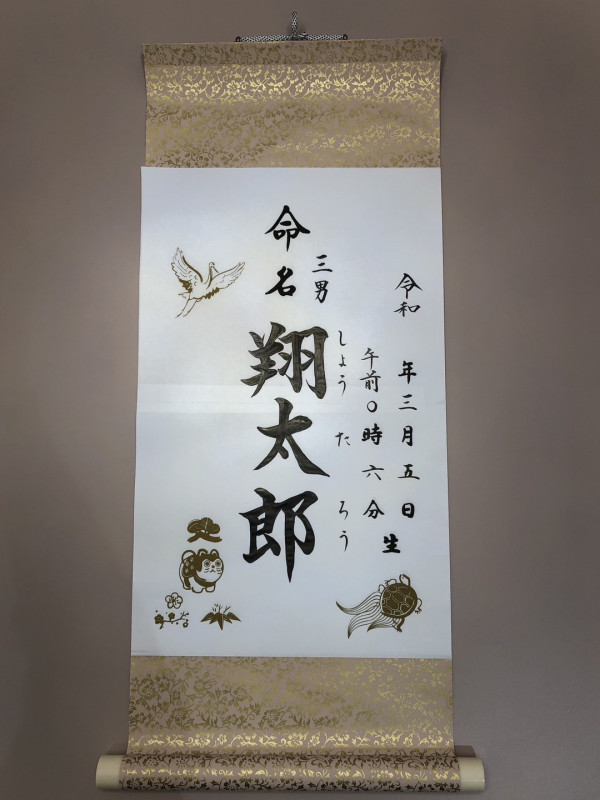 令和 年三月五日
午前〇時六分 生
しょう た ろう
三男
命名
翔太郎